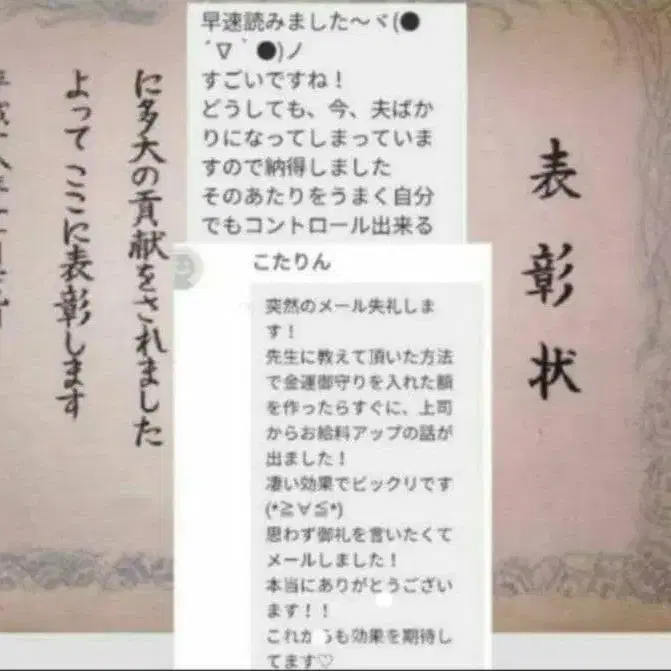 表彰状
に多大の貢献をされました
よってここに表彰します
早速読みました〜ヾ(●
´∇｀●)ノ
すごいですね！
どうしても、今、夫ばか
りになってしまっていま
すので納得しました
そのあたりをうまく自分
でもコントロール出来る
こたりん
突然のメール失礼しま
す！
先生に教えて頂いた方法
で金運御守りを入れた額
を作ったらすぐに、上司
からお給料アップの話が
出ました！
凄い効果でビックリです
(*≧∀≦*)
思わず御礼を言いたくて
メールしました！
本当にありがとうござい
ます！！
これからも効果を期待し
てます♡